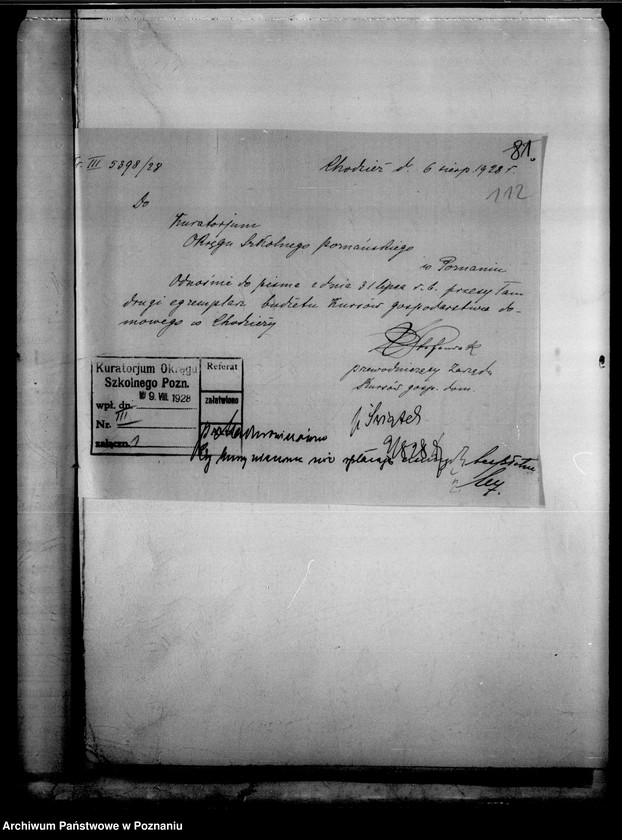 81.
Nr. III 5398/28
Chodzież d. 6 sierp. 1928 r.
112
Do
Kuratorjum
Okręgu Szkolnego poznańskiego
w Poznaniu
Odnośnie do pisma z dnia 31 lipca r. b. przesyłam
drugi egzemplarz budżetu Kursów gospodarstwa do-
mowego w Chodzieży
przewodniczący Zarządu
Kursów gosp. dom.
Kuratorjum Okręgu
Szkolnego Pozn.
wpł. dn. 9. VIII. 1928
Nr. III
załączn. 1
Referat
załatwiono
p. Świątek
9/8 28
nie
Archiwum Państwowe w Poznaniu